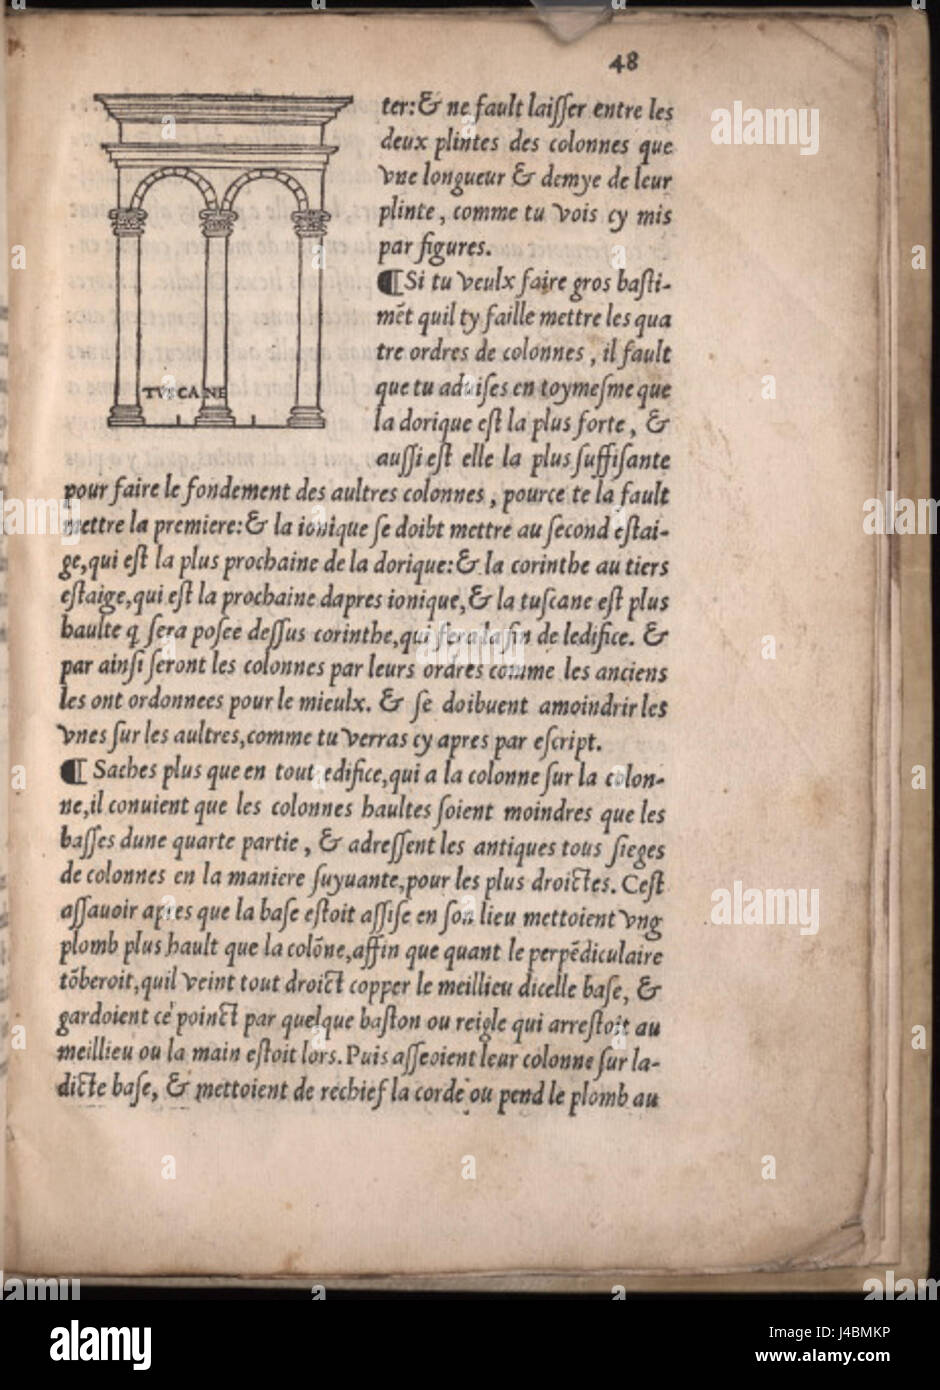 48
TVSCANE
ter:& ne fault laiſſer entre les
deux plintes des colonnes que
vne longueur & demye de leur
plinte, comme tu vois cy mis
par figures.
¶ Si tu veulx faire gros baſti-
mẽt quil ty faille mettre les qua
tre ordres de colonnes, il fault
que tu aduiſes en toymeſme que
la dorique eſt la plus forte, &
auſſi eſt elle la plus ſuffiſante
pour faire le fondement des aultres colonnes, pource te la fault
mettre la premiere:& la ionique ſe doibt mettre au ſecond eſtai-
ge,qui eſt la plus prochaine de la dorique:& la corinthe au tiers
eſtaige,qui eſt la prochaine dapres ionique,& la tuſcane eſt plus
haulte q ſera poſee deſſus corinthe,qui ſera la fin de ledifice. &
par ainſi ſeront les colonnes par leurs ordres comme les anciens
les ont ordonnees pour le mieulx. & ſe doibuent amoindrir les
vnes ſur les aultres,comme tu verras cy apres par eſcript.
¶ Saches plus que en tout edifice,qui a la colonne ſur la colon-
ne,il conuient que les colonnes haultes ſoient moindres que les
baſſes dune quarte partie, & adreſſent les antiques tous ſieges
de colonnes en la maniere ſuyuante,pour les plus droictes. Ceſt
aſſauoir apres que la baſe eſtoit aſſiſe en ſon lieu mettoient vng
plomb plus hault que la colõne,affin que quant le perpẽdiculaire
tõberoit,quil veint tout droict copper le meillieu dicelle baſe, &
gardoient ce poinct par quelque baſton ou reigle qui arreſtoit au
meillieu ou la main eſtoit lors. Puis aſſeoient leur colonne ſur la-
dicte baſe, & mettoient de rechief la corde ou pend le plomb au
alamy
alamy stock photo
Image ID: J4BMKP
www.alamy.com